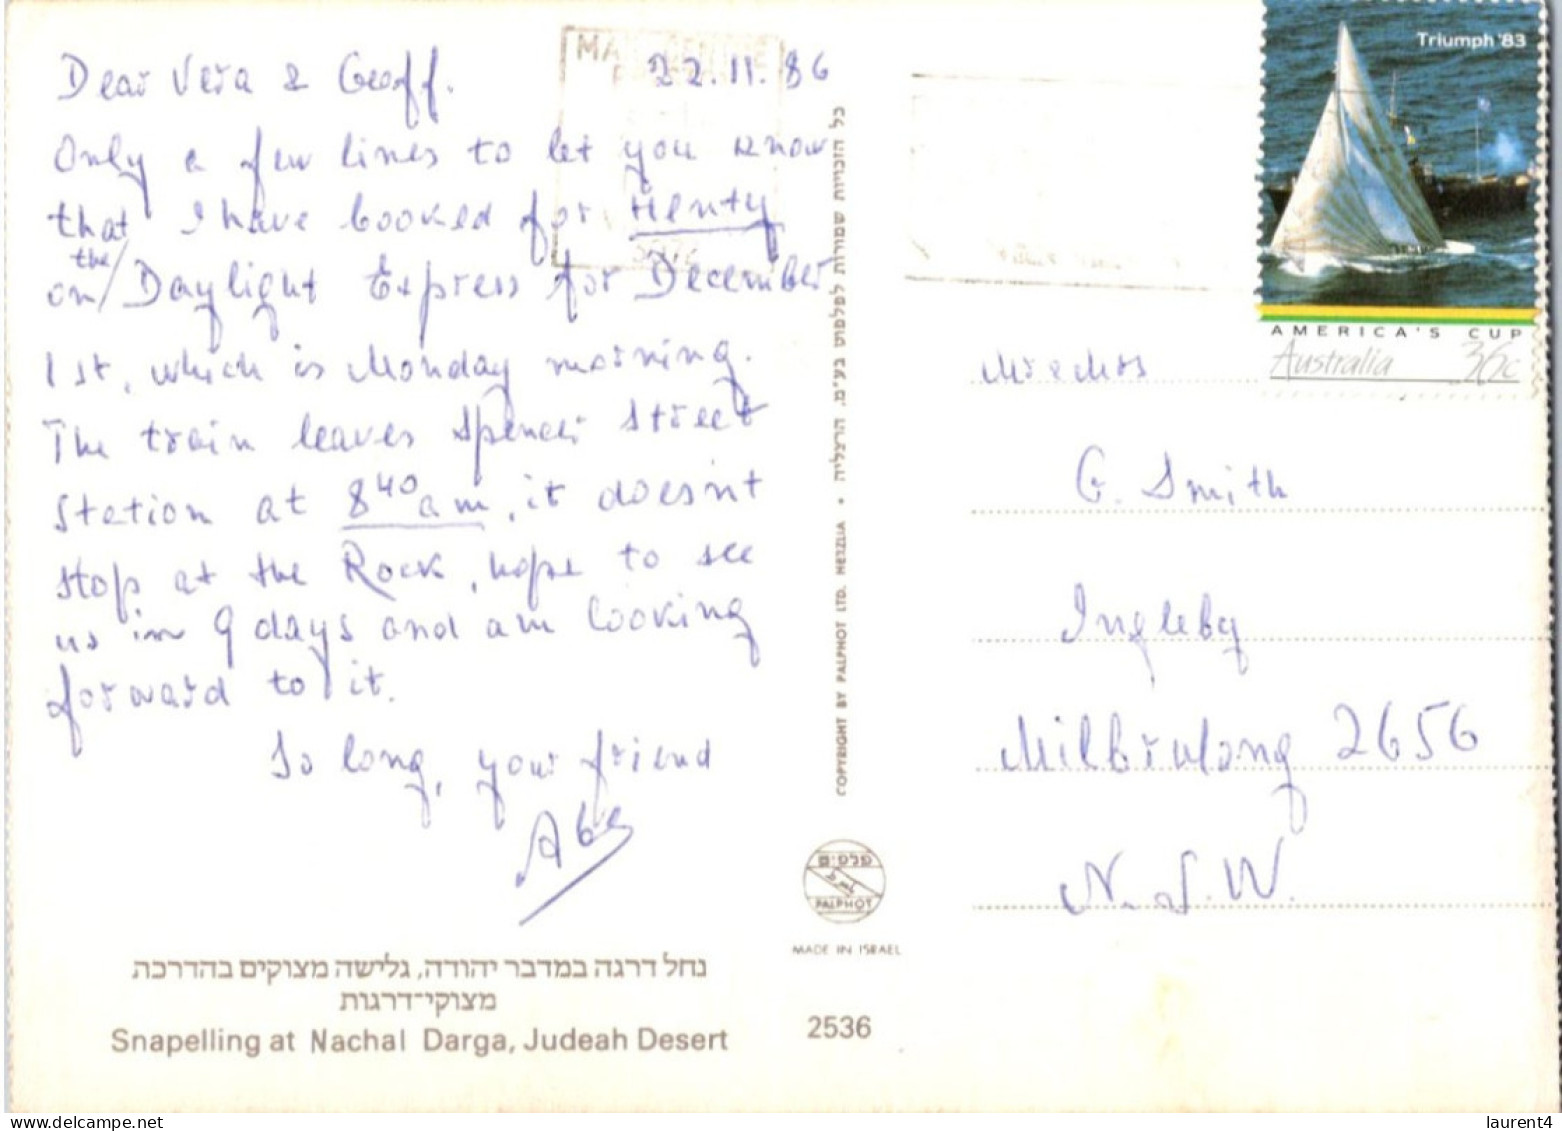 Dear Vera & Geoff. 22.11.86
Only a few lines to let you know
that I have booked for Henty
on/the Daylight Express for December
1st, which is Monday morning.
The train leaves Spencer Street
Station at 8 40 am, it doesn't
stop at the Rock, hope to see
us in 9 days and am looking
forward to it.
So long, your friend
Abe
נחל דרגה במדבר יהודה, גלישה מצוקים בהדרכת
מצוקי־דרגות
Snapelling at Nachal Darga, Judeah Desert
כל הזכויות שמורות לפלפוט בע"מ, הרצליה • COPYRIGHT BY PALPHOT LTD. HERZLIA
PALPHOT
MADE IN ISRAEL
2536
Triumph '83
AMERICA'S CUP
Australia 36c
Mr & Mrs
G. Smith
Ingleby
Milbrulong 2656
N.S.W.
laurent4